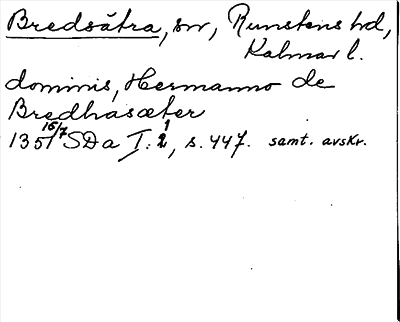 Bredsätra, sn, Runstens hd,
Kalmar l.
dominis, Hermanno de
Bredhasæter
1351 16/7 SDa I:1, s. 447. samt. avskr.